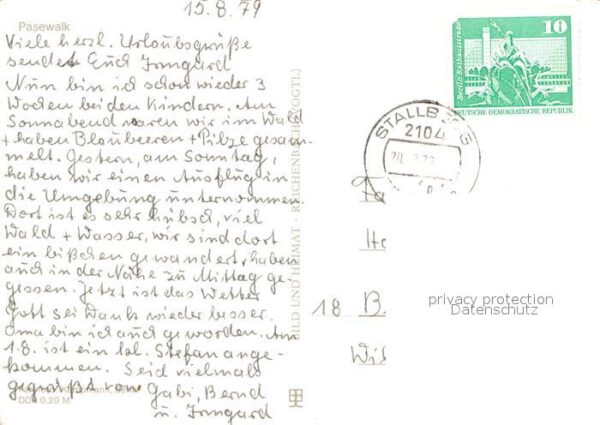 15.8.79
Pasewalk
Viele herzl. Urlaubsgrüße
sendet Euch Irmgard
Nun bin ich schon wieder 3
Wochen bei den Kindern. Am
Sonnabend waren wir im Wald
+ haben Blaubeeren + Pilze gesam-
melt. Gestern, am Sonntag,
haben wir einen Ausflug in
die Umgebung unternommen.
Dort ist es sehr hübsch, viel
Wald + Wasser, wir sind dort
ein bißchen gewandert, haben
auch in der Nähe zu Mittag ge-
gessen. Jetzt ist das Wetter
Gott sei Dank wieder besser.
Oma bin ich auch geworden. Am
1.8. ist ein kl. Stefan ange-
kommen. Seid vielmals
gegrüßt von Gabi, Bernd
u. Irmgard
DDR 0,20 M
BILD UND HEIMAT · REICHENBACH (VOGTL)
10
Berlin, Rathausstraße
DEUTSCHE DEMOKRATISCHE REPUBLIK
STALLB
G
2104
18 B.
privacy protection
Datenschutz